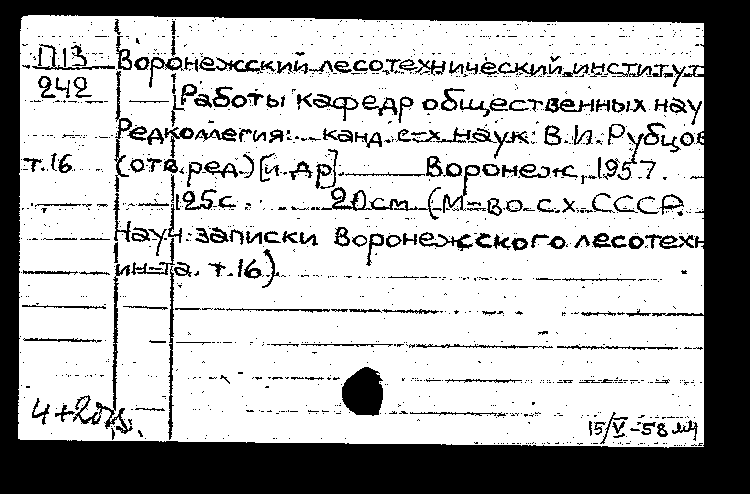 П13 Воронежский лесотехнический институт
242 [Работы кафедр общественных нау
Редколлегия: канд. с-х наук В.И. Рубцов
т.16 (отв. ред.) [и др]. Воронеж, 1957.
125с. 20см (М-во с.х. СССР.
Науч. записки Воронежского лесотехн
ин-та. т.16).
15/V-58